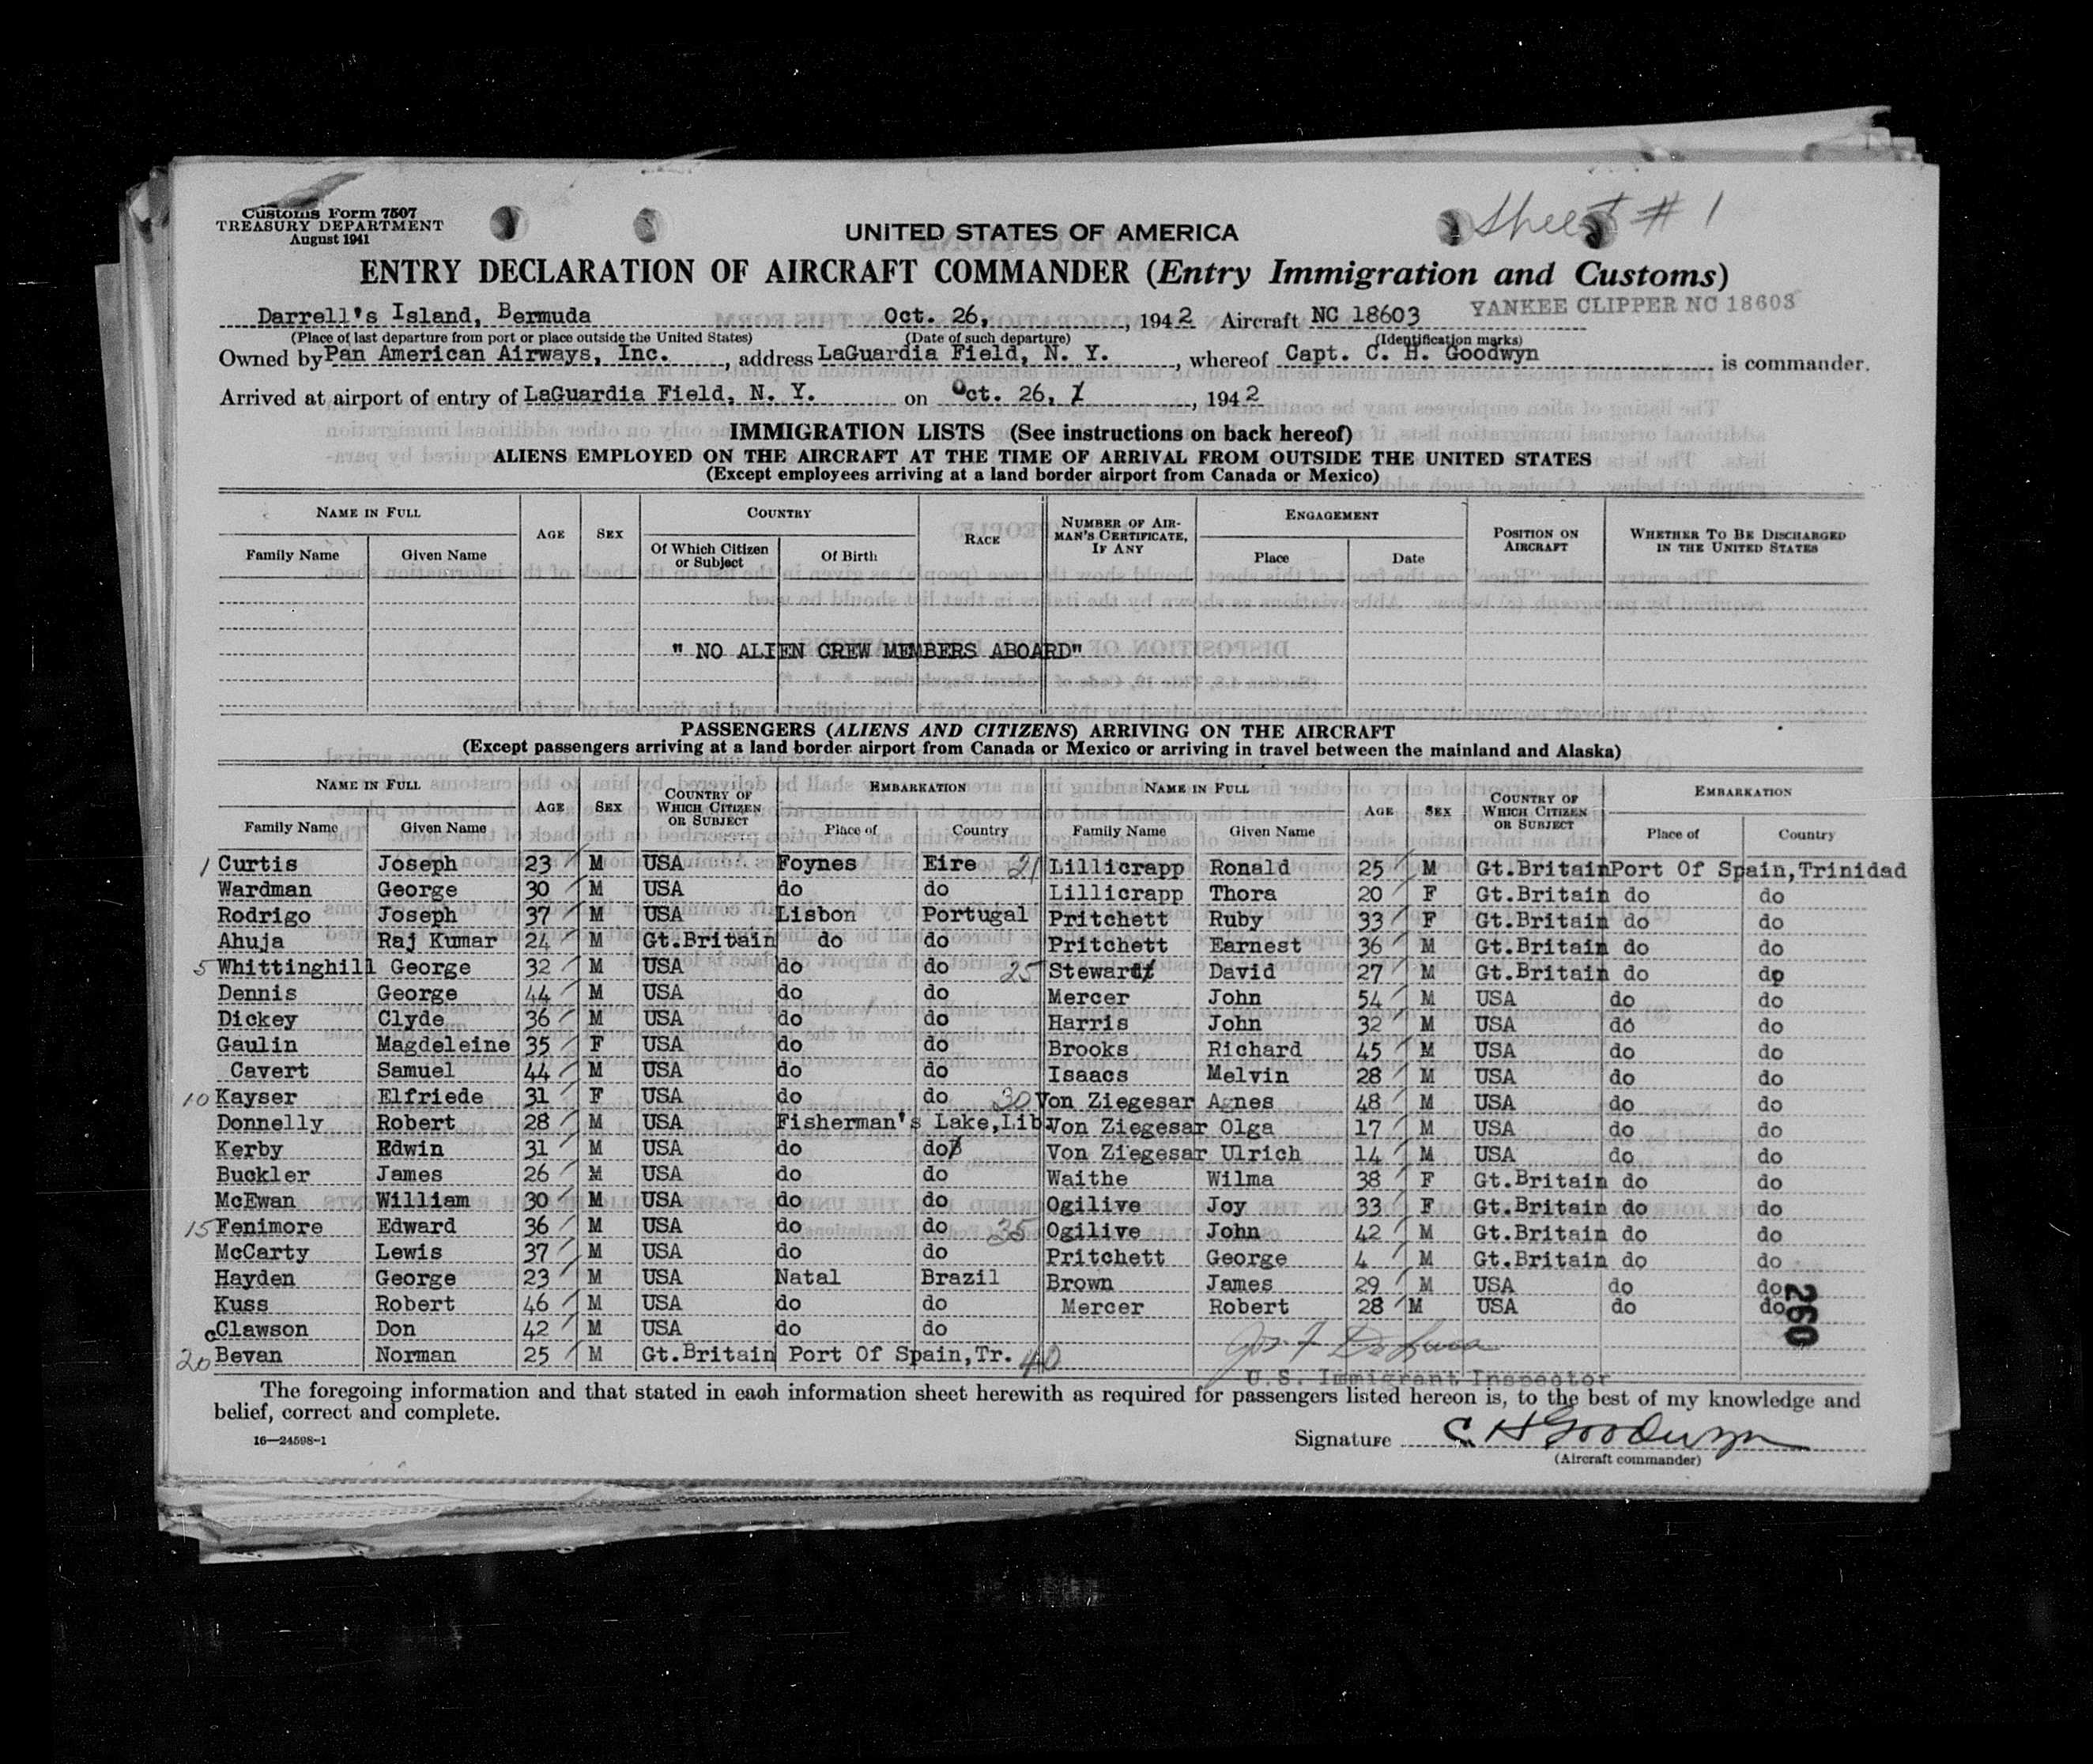 Customs Form 7507
TREASURY DEPARTMENT
August 1941
Sheet # 1
UNITED STATES OF AMERICA
ENTRY DECLARATION OF AIRCRAFT COMMANDER (Entry Immigration and Customs)
Darrell's Island, Bermuda Oct. 26, , 1942 Aircraft NC 18603 YANKEE CLIPPER NC 18603
(Place of last departure from port or place outside the United States) (Date of such departure) (Identification marks)
Owned by Pan American Airways, Inc. , address LaGuardia Field, N. Y. , whereof Capt. C. H. Goodwyn is commander.
Arrived at airport of entry of LaGuardia Field, N. Y. on Oct. 26, , 1942
IMMIGRATION LISTS (See instructions on back hereof)
ALIENS EMPLOYED ON THE AIRCRAFT AT THE TIME OF ARRIVAL FROM OUTSIDE THE UNITED STATES
(Except employees arriving at a land border airport from Canada or Mexico)
NAME IN FULL AGE SEX COUNTRY RACE NUMBER OF AIRMAN'S CERTIFICATE, IF ANY ENGAGEMENT POSITION ON AIRCRAFT WHETHER TO BE DISCHARGED IN THE UNITED STATES
Family Name Given Name Of Which Citizen or Subject Of Birth Place Date
" NO ALIEN CREW MEMBERS ABOARD"
PASSENGERS (ALIENS AND CITIZENS) ARRIVING ON THE AIRCRAFT
(Except passengers arriving at a land border airport from Canada or Mexico or arriving in travel between the mainland and Alaska)
NAME IN FULL AGE SEX COUNTRY OF WHICH CITIZEN OR SUBJECT EMBARKATION NAME IN FULL AGE SEX COUNTRY OF WHICH CITIZEN OR SUBJECT EMBARKATION
Family Name Given Name Place of Country Family Name Given Name Place of Country
1 Curtis Joseph 23 M USA Foynes Eire 21 Lillicrapp Ronald 25 M Gt.Britain Port Of Spain,Trinidad
Wardman George 30 M USA do do Lillicrapp Thora 20 F Gt.Britain do do
Rodrigo Joseph 37 M USA Lisbon Portugal Pritchett Ruby 33 F Gt.Britain do do
Ahuja Raj Kumar 24 M Gt.Britain do do Pritchett Earnest 36 M Gt.Britain do do
5 Whittinghill George 32 M USA do do 25 Steward David 27 M Gt.Britain do do
Dennis George 44 M USA do do Mercer John 54 M USA do do
Dickey Clyde 36 M USA do do Harris John 32 M USA do do
Gaulin Magdeleine 35 F USA do do Brooks Richard 45 M USA do do
Cavert Samuel 44 M USA do do Isaacs Melvin 28 M USA do do
10 Kayser Elfriede 31 F USA do do 30 Von Ziegesar Agnes 48 M USA do do
Donnelly Robert 28 M USA Fisherman's Lake,Lib. Von Ziegesar Olga 17 M USA do do
Kerby Edwin 31 M USA do do Von Ziegesar Ulrich 14 M USA do do
Buckler James 26 M USA do do Waithe Wilma 38 F Gt.Britain do do
McEwan William 30 M USA do do Ogilive Joy 33 F Gt.Britain do do
15 Fenimore Edward 36 M USA do do 35 Ogilive John 42 M Gt.Britain do do
McCarty Lewis 37 M USA do do Pritchett George 4 M Gt.Britain do do
Hayden George 23 M USA Natal Brazil Brown James 29 M USA do do
Kuss Robert 46 M USA do do Mercer Robert 28 M USA do do
Clawson Don 42 M USA do do
20 Bevan Norman 25 M Gt.Britain Port Of Spain,Tr. 40
260
U.S. Immigrant Inspector
The foregoing information and that stated in each information sheet herewith as required for passengers listed hereon is, to the best of my knowledge and
belief, correct and complete.
16—24598-1
Signature C H Goodwyn
(Aircraft commander)